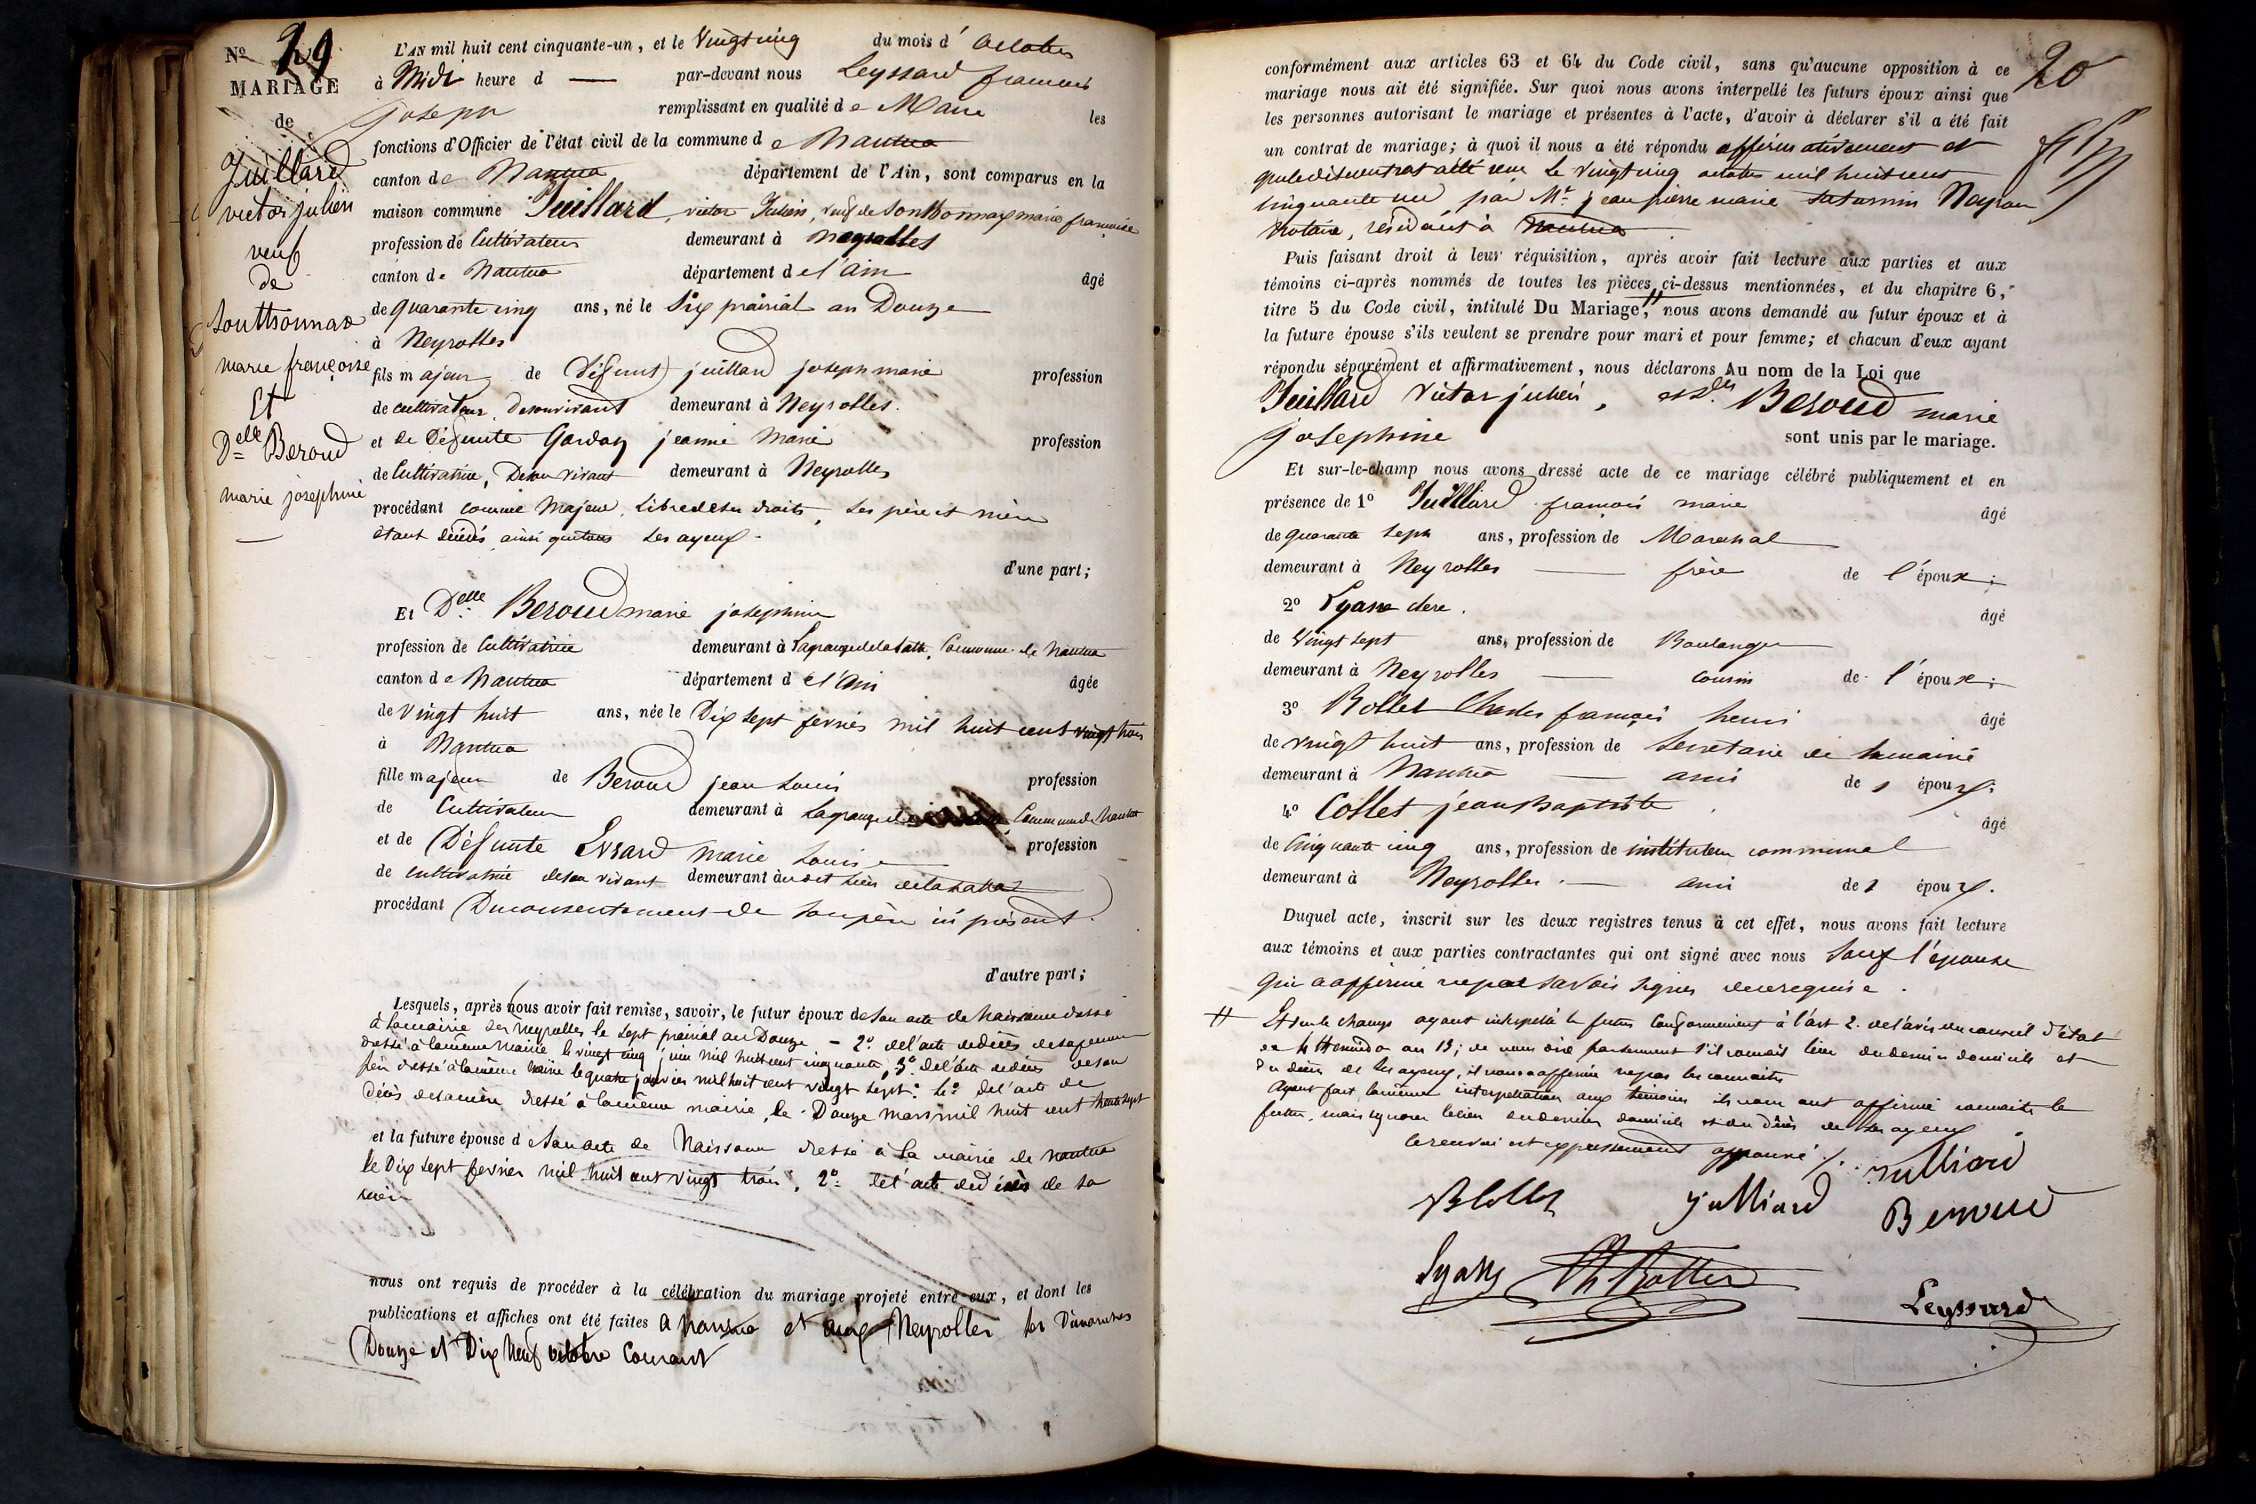 No 29
MARIAGE
de
Juillard
victor julien
veuf
de
Southonnax
marie françoise
Et
Delle Beroud
marie josephine
L'AN mil huit cent cinquante-un, et le Vingt cinq du mois d'octobre
à Midi heure d — par-devant nous Leyssard françois
joseph remplissant en qualité de Maire les
fonctions d'Officier de l'état civil de la commune de Nantua
canton de Nantua département de l'Ain, sont comparus en la
maison commune Juillard, victor Julien, veuf de Sonthonnax marie françoise
profession de Cultivateur demeurant à Neyrolles
canton de Nantua département de l'Ain âgé
de quarante cinq ans, né le Six prairial an Douze
à Neyrolles
fils majeur de Défunt juillard joseph marie profession
de cultivateur, de son vivant demeurant à Neyrolles.
et de Défunte Gardon jeanne Marie profession
de Cultivatrice, De son vivant demeurant à Neyrolles
procédant comme Majeur, libre de ses droits, ses père et mère
étant décédés ainsi que tous ses ayeux.
d'une part;
Et Delle Beroud marie josephine
profession de Cultivatrice demeurant à Lagrange de la , Commune de Nantua
canton de Nantua département de l'Ain âgée
de Vingt huit ans, née le Dix sept fevrier mil huit cent vingt trois
à Nantua
fille majeure de Beroud jean Louis profession
de Cultivateur demeurant à Lagrange , Commune de Nantua
et de Défunte Evrard marie Louise profession
de cultivatrice de son vivant demeurant audit lieu
procédant Du consentement de son père ici présent.
d'autre part;
Lesquels, après nous avoir fait remise, savoir, le futur époux de son acte de Naissance dressé
à la mairie des neyrolles le sept prairial an Douze — 2° de l'acte de décès de sa femme
dressé à la même mairie le vingt cinq juin mil huit cent cinquante, 3° de l'acte de décès de son
père dressé à la même mairie le quatre janvier mil huit cent vingt sept; 4° de l'acte de
décès de sa mère dressé à la même mairie, le Douze mars mil huit cent trente sept
et la future épouse de son acte de Naissance dressé à la mairie de nantua
le Dix sept fevrier mil huit cent vingt trois, 2° de l'acte de décès de sa
mère
nous ont requis de procéder à la célébration du mariage projeté entre eux, et dont les
publications et affiches ont été faites à Nantua et aux Neyrolles les Dimanches
Douze et Dix Neuf octobre Courant
20
conformément aux articles 63 et 64 du Code civil, sans qu'aucune opposition à ce
mariage nous ait été signifiée. Sur quoi nous avons interpellé les futurs époux ainsi que
les personnes autorisant le mariage et présentes à l'acte, d'avoir à déclarer s'il a été fait
un contrat de mariage; à quoi il nous a été répondu affirmativement et
que le dit contrat a été reçu le vingt cinq octobre mil huit cent
cinquante un par Mr. jean pierre marie Saturnin Neyron
Notaire, résidant à Nantua.
Puis faisant droit à leur réquisition, après avoir fait lecture aux parties et aux
témoins ci-après nommés de toutes les pièces ci-dessus mentionnées, et du chapitre 6,
titre 5 du Code civil, intitulé Du Mariage, nous avons demandé au futur époux et à
la future épouse s'ils veulent se prendre pour mari et pour femme; et chacun d'eux ayant
répondu séparément et affirmativement, nous déclarons Au nom de la Loi que
Juillard victor julien, et Delle Beroud marie
josephine sont unis par le mariage.
Et sur-le-champ nous avons dressé acte de ce mariage célébré publiquement et en
présence de 1° Juillard françois marie âgé
de quarante sept ans, profession de Marechal
demeurant à Neyrolles — frère de l'époux;
2° Lyana âgé
de Vingt sept ans, profession de Boulanger
demeurant à Neyrolles — cousin de l'époux;
3° Rollet Charles françois henri âgé
de vingt huit ans, profession de Secretaire de la mairie
demeurant à Nantua — ami de l'époux;
4° Collet jean Baptiste âgé
de Cinquante cinq ans, profession de instituteur communal
demeurant à Neyrolles — ami de l'époux.
Duquel acte, inscrit sur les deux registres tenus à cet effet, nous avons fait lecture
aux témoins et aux parties contractantes qui ont signé avec nous Sauf l'épouse
qui a affirmé ne pas savoir signer de ce requise.
Et sur le champ ayant interpellé le futur Conformément à l'art 2. de l'avis du conseil d'état
de 4 thermidor an 13; de nous dire par serment s'il connait lieu du dernier domicile et
du décès de ses ayeux, il nous a affirmé ne pas les connaitre
Ayant fait la même interpellation aux témoins ils nous ont affirmé connaitre le
futur, mais ignorer le lieu du dernier domicile et du décès de ses ayeux
ce renvoi est expressement approuvé
Julliard
Collet Julliard Beroud
Lyana Ch Rollet
Leyssard